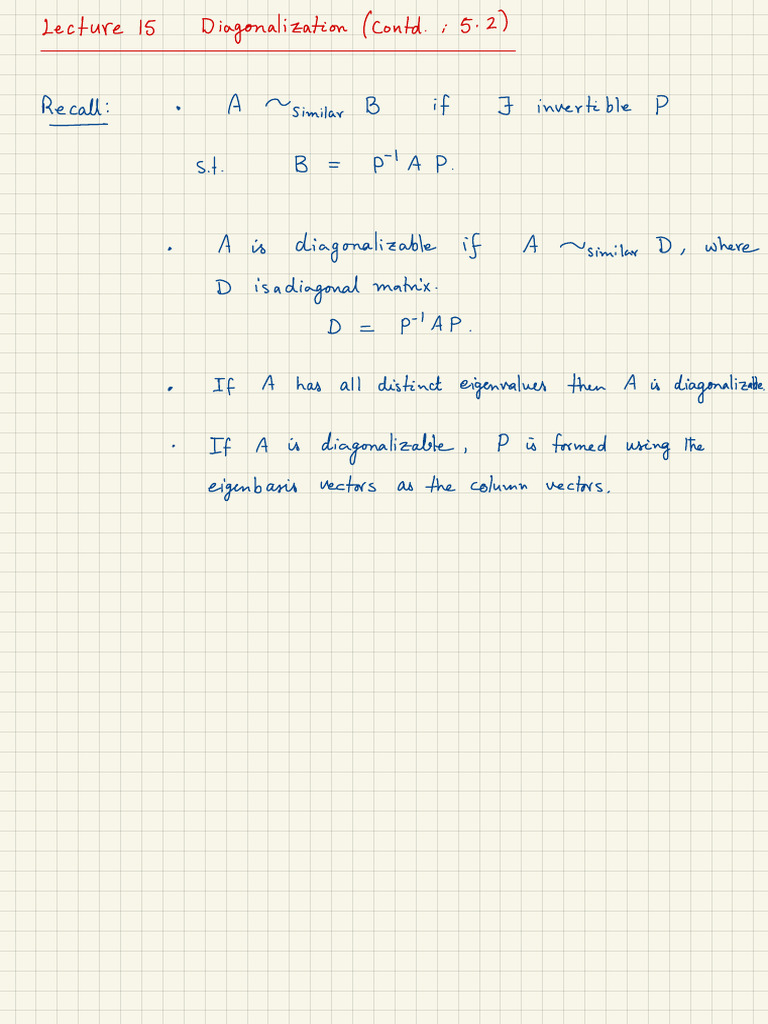 Lecture 15 Diagonalization (Contd. ; 5.2)
Recall: • A ~Similar B if ∃ invertible P
s.t. B = P⁻¹ A P.
• A is diagonalizable if A ~Similar D, where
D is a diagonal matrix.
D = P⁻¹ A P.
• If A has all distinct eigenvalues then A is diagonalizable.
• If A is diagonalizable, P is formed using the
eigenbasis vectors as the column vectors.